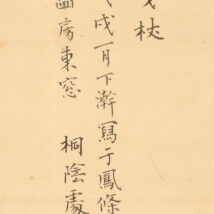 杖
戌一月下澣寫于鳳條
房東窓
桐陰處